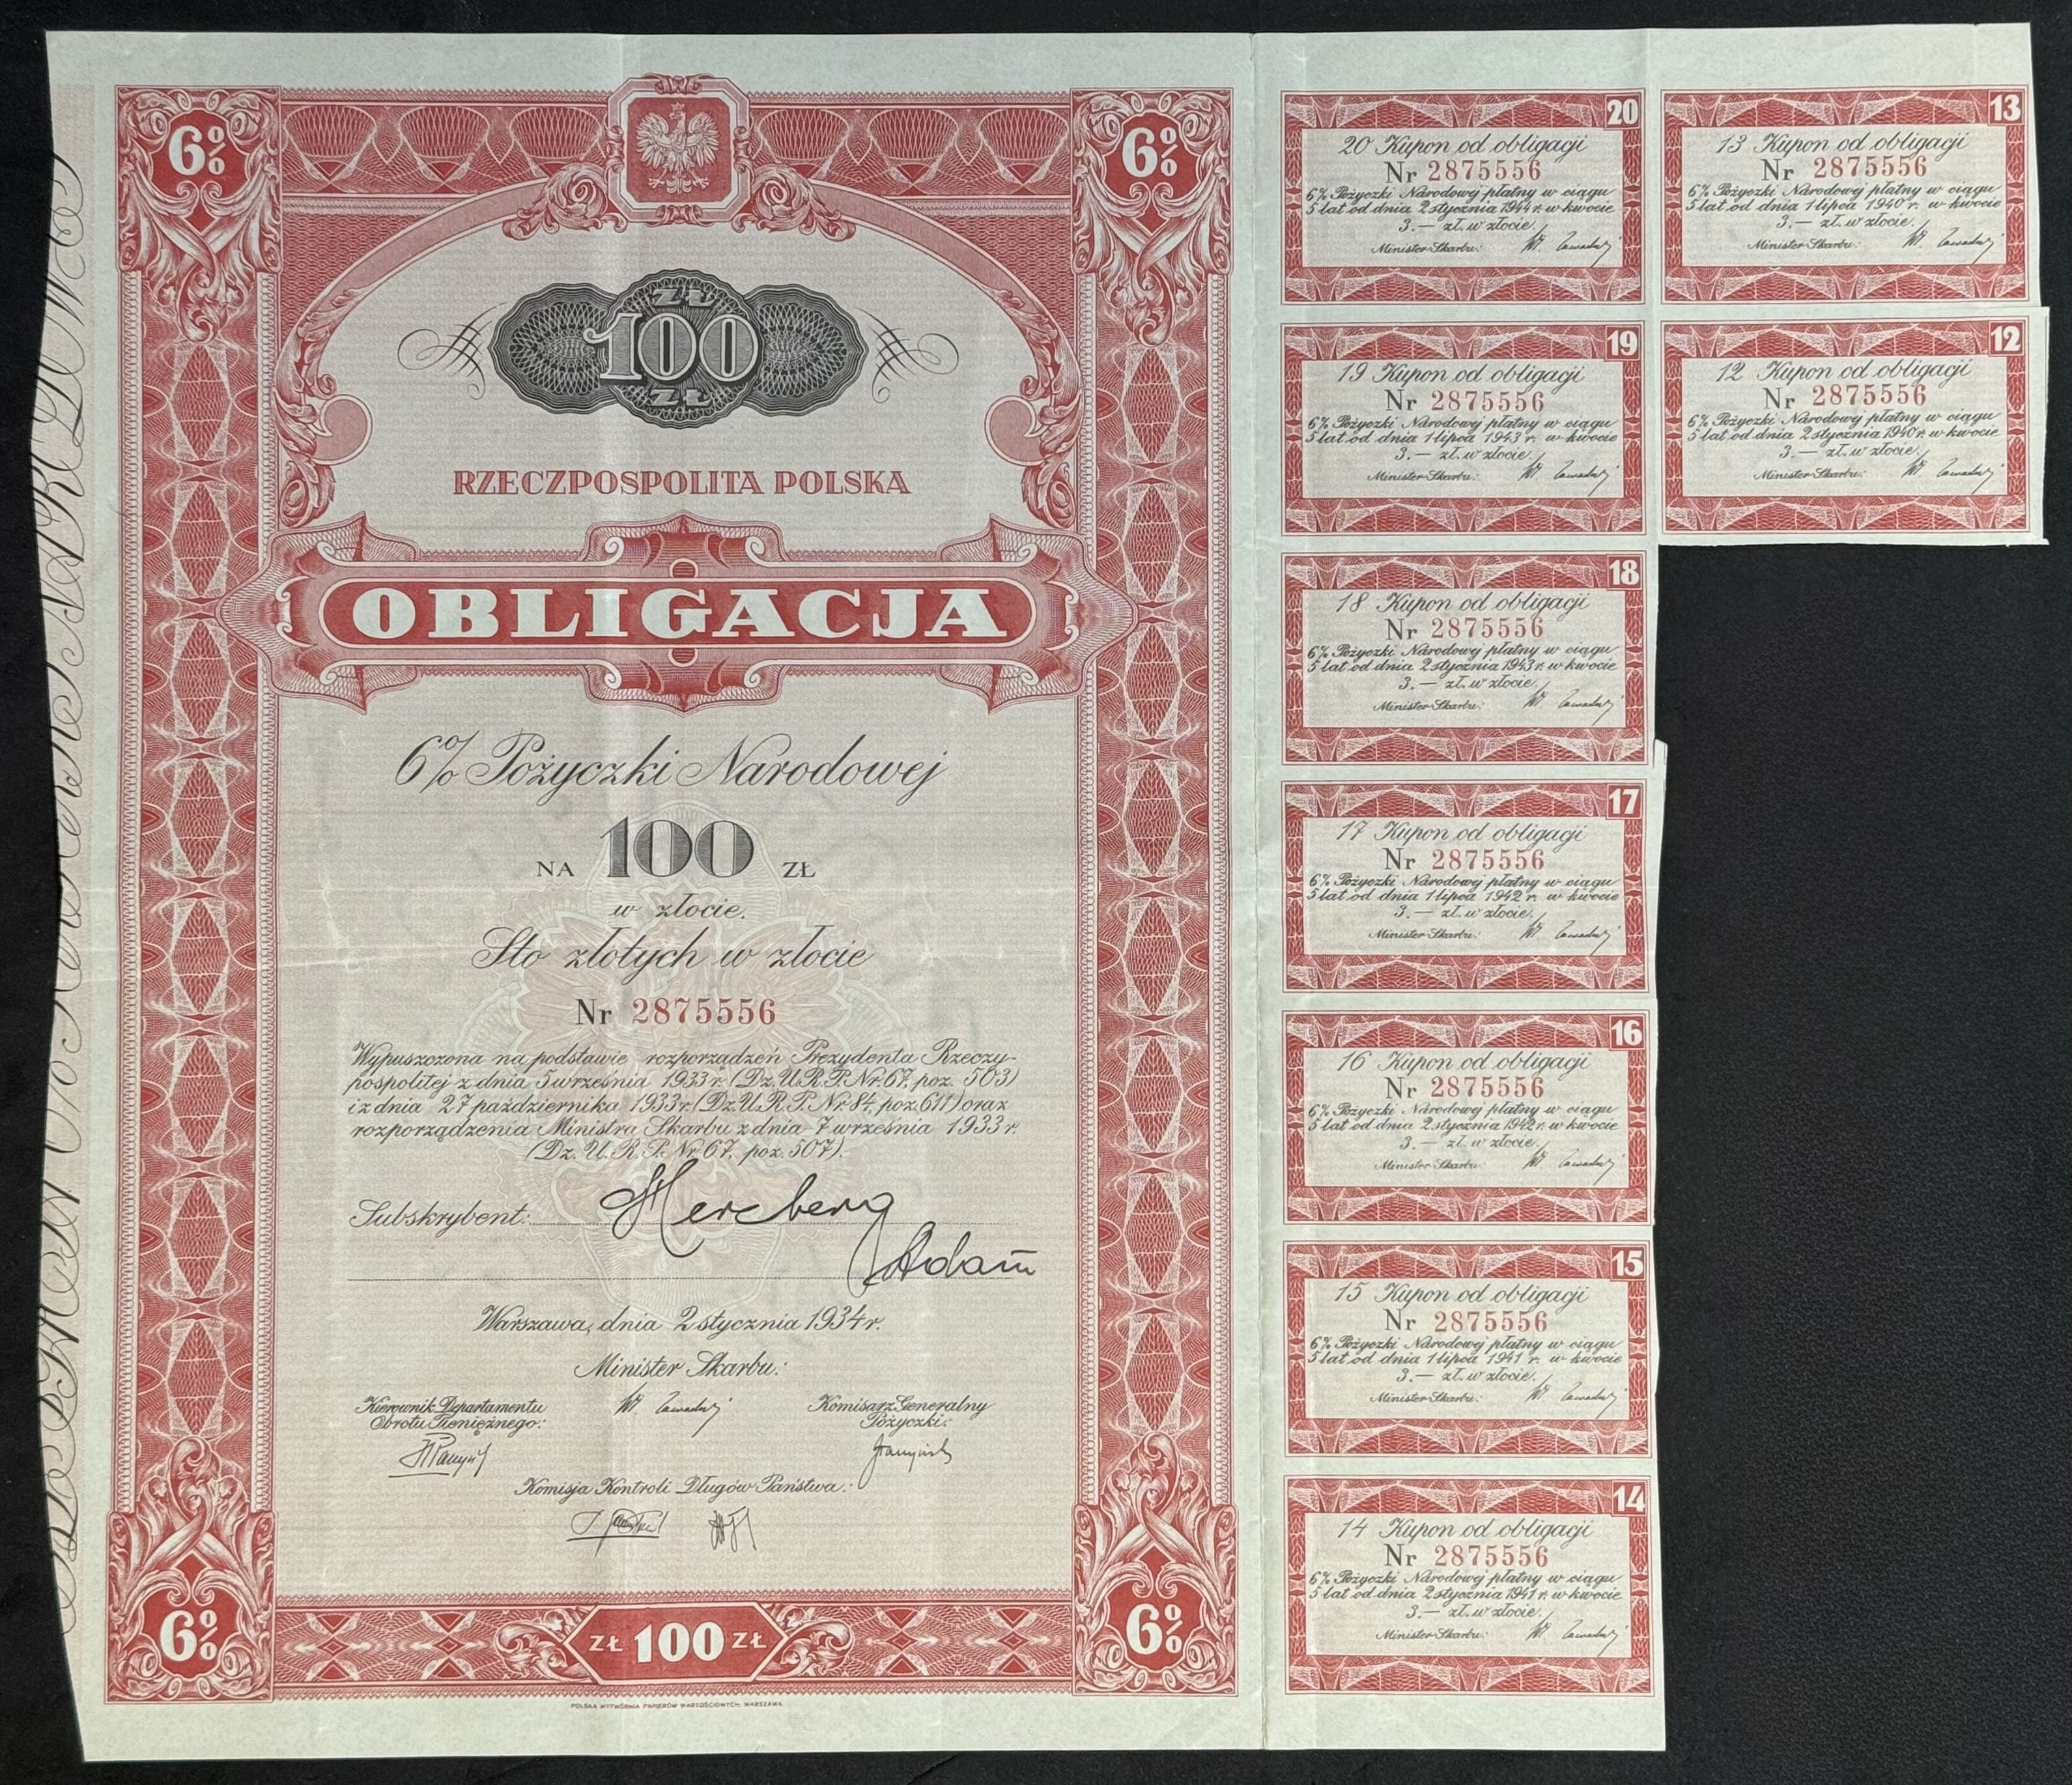 6%
6%
ZŁ
100
ZŁ
RZECZPOSPOLITA POLSKA
OBLIGACJA
6% Pożyczki Narodowej
NA 100 ZŁ
w złocie.
Sto złotych w złocie
Nr 2875556
Wypuszczona na podstawie rozporządzeń Prezydenta Rzeczy-
pospolitej z dnia 5 września 1933 r. (Dz. U. R. P. Nr. 67, poz. 503)
i z dnia 27 października 1933 r. (Dz. U. R. P. Nr 84, poz. 611) oraz
rozporządzenia Ministra Skarbu z dnia 7 września 1933 r.
(Dz. U. R. P. Nr 67, poz. 507).
Subskrybent: Hercberg
Adam
Warszawa, dnia 2 stycznia 1934 r.
Minister Skarbu:
Kierownik Departamentu
Obrotu Pieniężnego:
Komisarz Generalny
Pożyczki:
Komisja Kontroli Długów Państwa:
6%
ZŁ 100 ZŁ
6%
POLSKA WYTWÓRNIA PAPIERÓW WARTOŚCIOWYCH. WARSZAWA.
20
20 Kupon od obligacji
Nr 2875556
6% Pożyczki Narodowej płatny w ciągu
5 lat od dnia 2 stycznia 1944 r. w kwocie
3.— zł. w złocie.
Minister Skarbu:
19
19 Kupon od obligacji
Nr 2875556
6% Pożyczki Narodowej płatny w ciągu
5 lat od dnia 1 lipca 1943 r. w kwocie
3.— zł. w złocie.
Minister Skarbu:
18
18 Kupon od obligacji
Nr 2875556
6% Pożyczki Narodowej płatny w ciągu
5 lat od dnia 2 stycznia 1943 r. w kwocie
3.— zł. w złocie.
Minister Skarbu:
17
17 Kupon od obligacji
Nr 2875556
6% Pożyczki Narodowej płatny w ciągu
5 lat od dnia 1 lipca 1942 r. w kwocie
3.— zł. w złocie.
Minister Skarbu:
16
16 Kupon od obligacji
Nr 2875556
6% Pożyczki Narodowej płatny w ciągu
5 lat od dnia 2 stycznia 1942 r. w kwocie
3.— zł. w złocie.
Minister Skarbu:
15
15 Kupon od obligacji
Nr 2875556
6% Pożyczki Narodowej płatny w ciągu
5 lat od dnia 1 lipca 1941 r. w kwocie
3.— zł. w złocie.
Minister Skarbu:
14
14 Kupon od obligacji
Nr 2875556
6% Pożyczki Narodowej płatny w ciągu
5 lat od dnia 2 stycznia 1941 r. w kwocie
3.— zł. w złocie.
Minister Skarbu:
13
13 Kupon od obligacji
Nr 2875556
6% Pożyczki Narodowej płatny w ciągu
5 lat od dnia 1 lipca 1940 r. w kwocie
3.— zł. w złocie.
Minister Skarbu:
12
12 Kupon od obligacji
Nr 2875556
6% Pożyczki Narodowej płatny w ciągu
5 lat od dnia 2 stycznia 1940 r. w kwocie
3.— zł. w złocie.
Minister Skarbu: